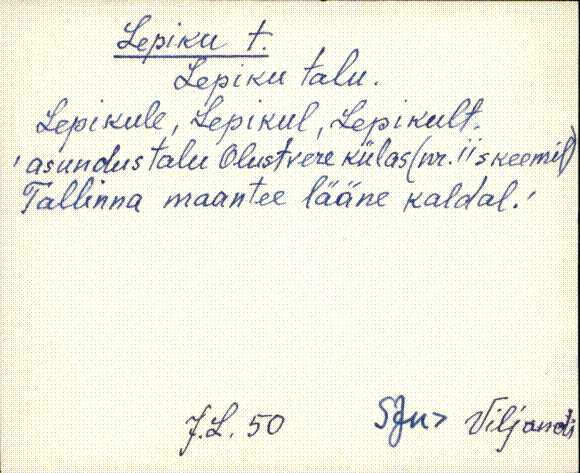 Lepiku t.
Lepiku talu.
Lepikule, Lepikul, Lepikult.
'asundustalu Olustvere külas (nr. 11 skeemil)
Tallinna maantee lääne kaldal.'
J.L. 50
SJn> Viljandi